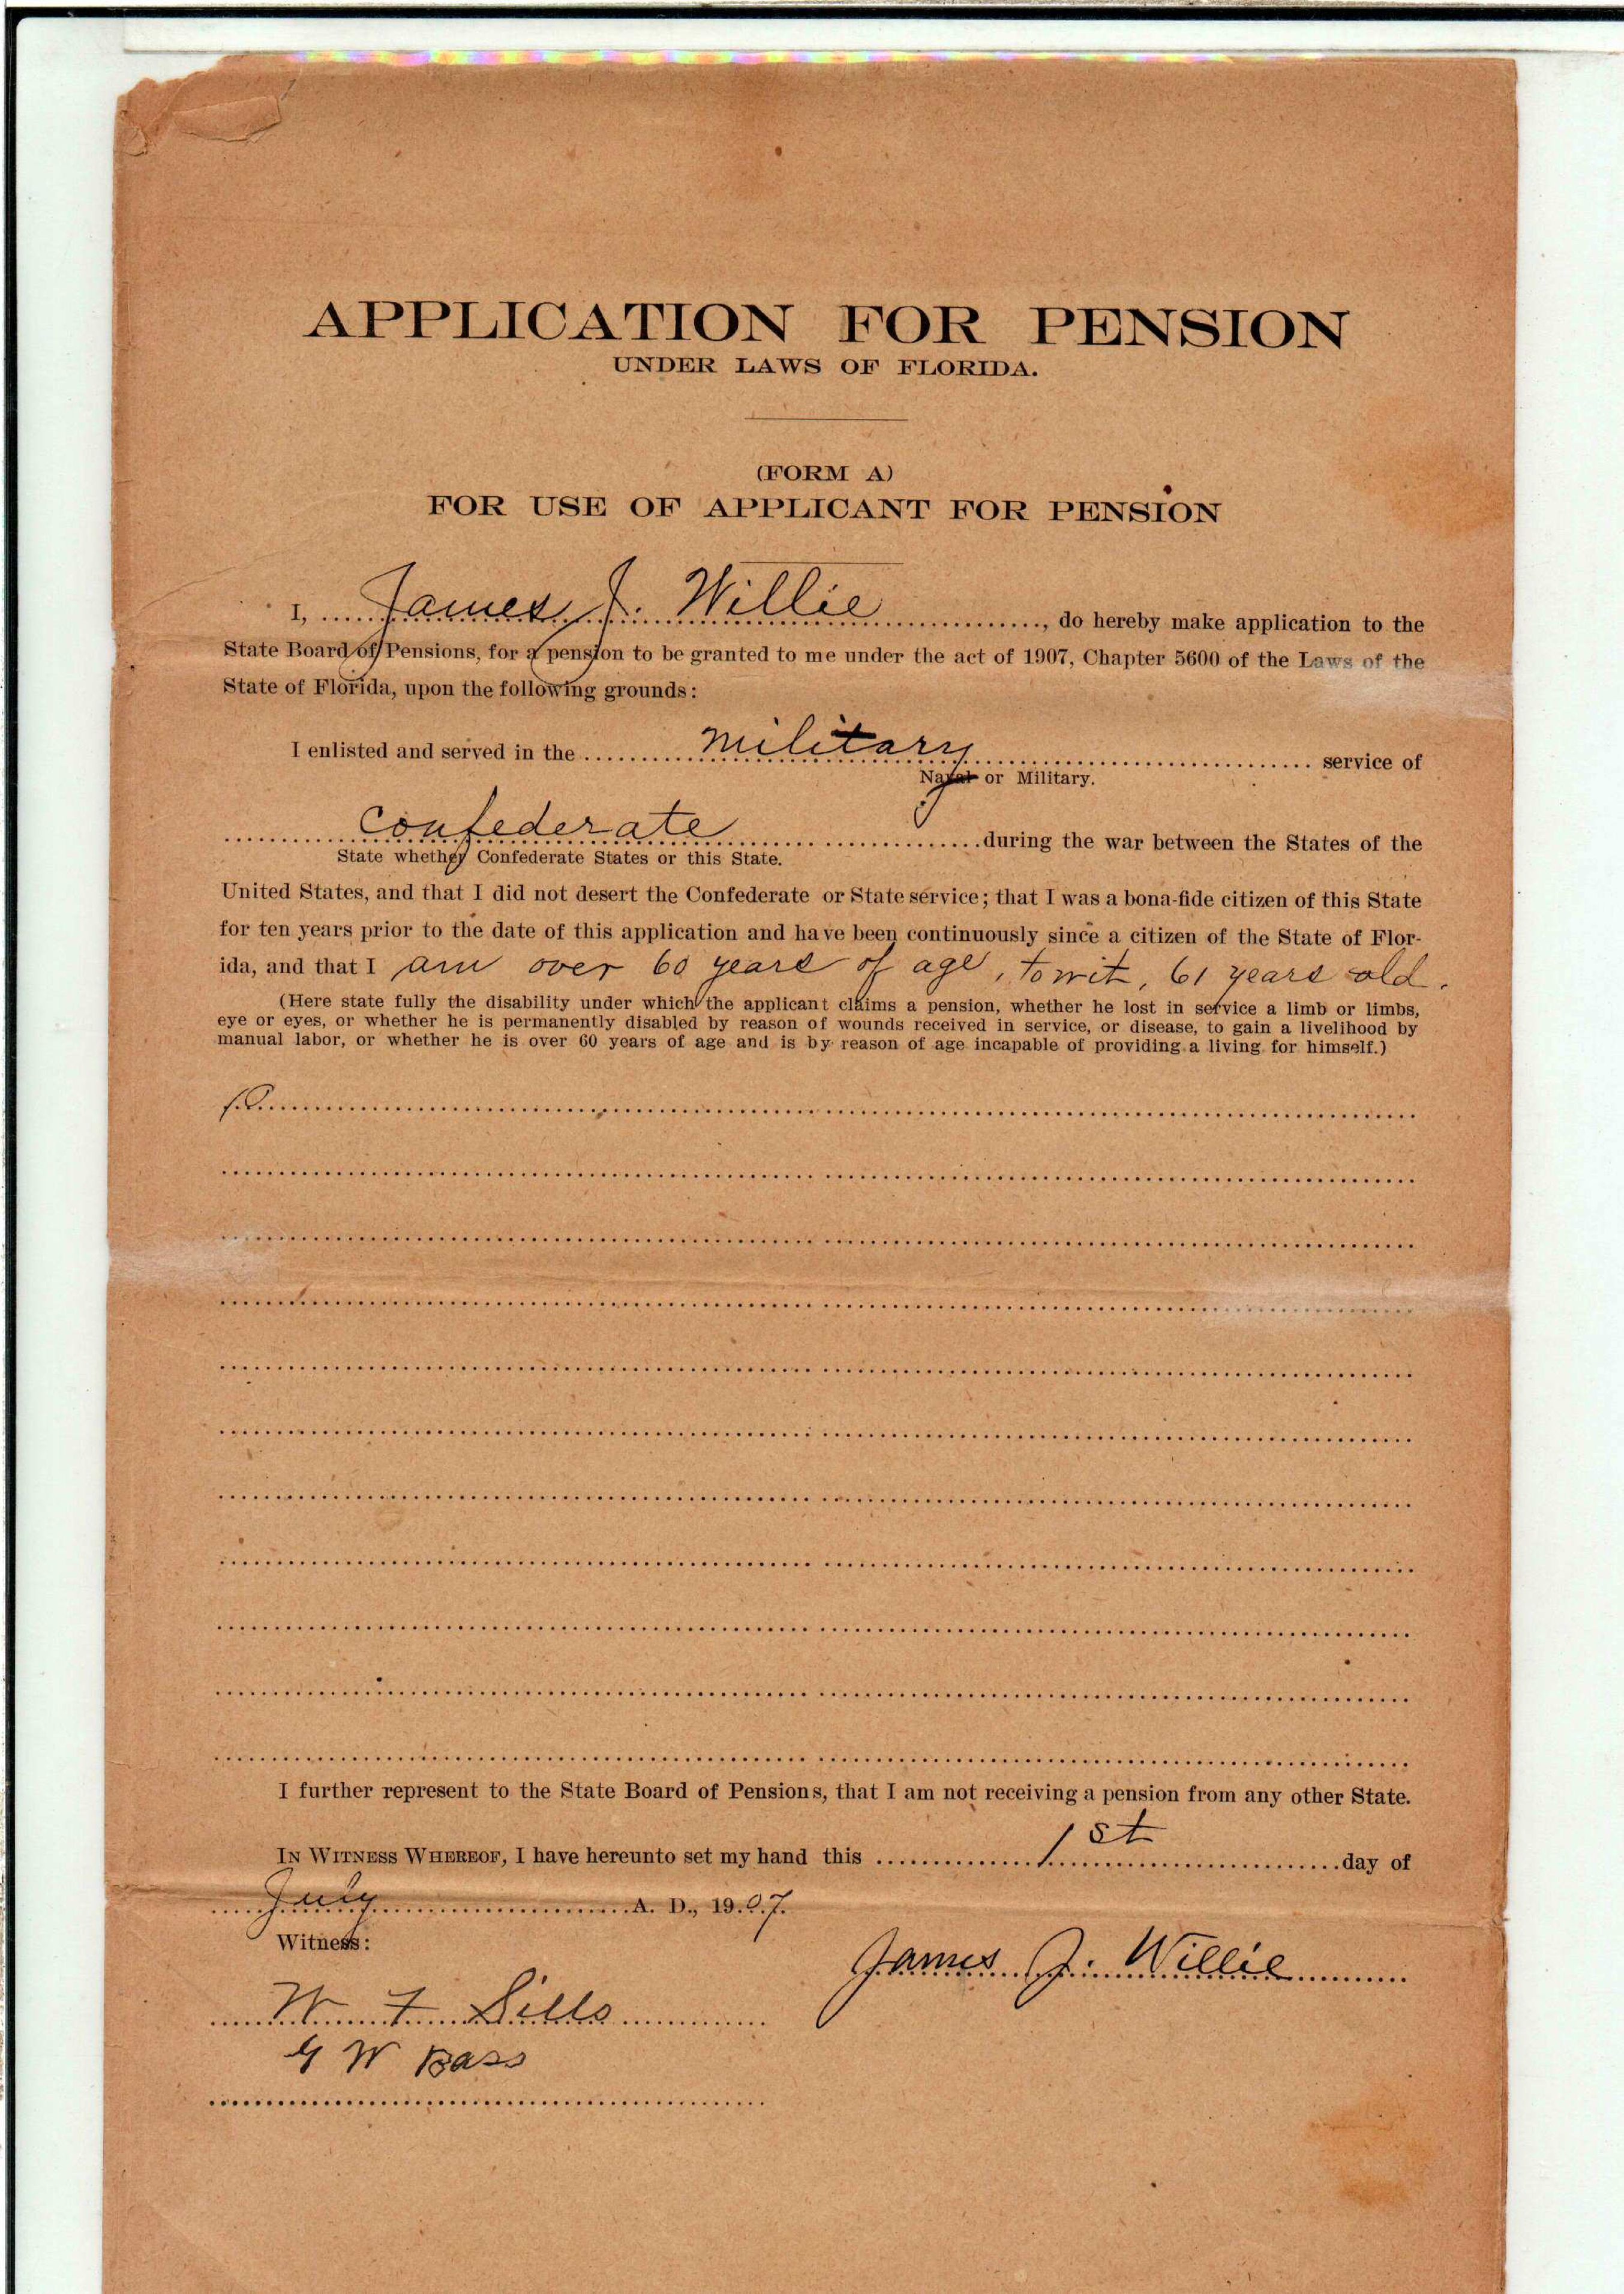 APPLICATION FOR PENSION
UNDER LAWS OF FLORIDA.
(FORM A)
FOR USE OF APPLICANT FOR PENSION
I, James J. Willie, do hereby make application to the
State Board of Pensions, for a pension to be granted to me under the act of 1907, Chapter 5600 of the Laws of the
State of Florida, upon the following grounds:
I enlisted and served in the military service of
Naval or Military.
Confederate during the war between the States of the
State whether Confederate States or this State.
United States, and that I did not desert the Confederate or State service; that I was a bona-fide citizen of this State
for ten years prior to the date of this application and have been continuously since a citizen of the State of Flor-
ida, and that I am over 60 years of age, towit, 61 years old.
(Here state fully the disability under which the applicant claims a pension, whether he lost in service a limb or limbs,
eye or eyes, or whether he is permanently disabled by reason of wounds received in service, or disease, to gain a livelihood by
manual labor, or whether he is over 60 years of age and is by reason of age incapable of providing a living for himself.)
I further represent to the State Board of Pensions, that I am not receiving a pension from any other State.
IN WITNESS WHEREOF, I have hereunto set my hand this 1st day of
July A. D., 1907.
Witness:
James J. Willie
W. F. Sills
G W Bass